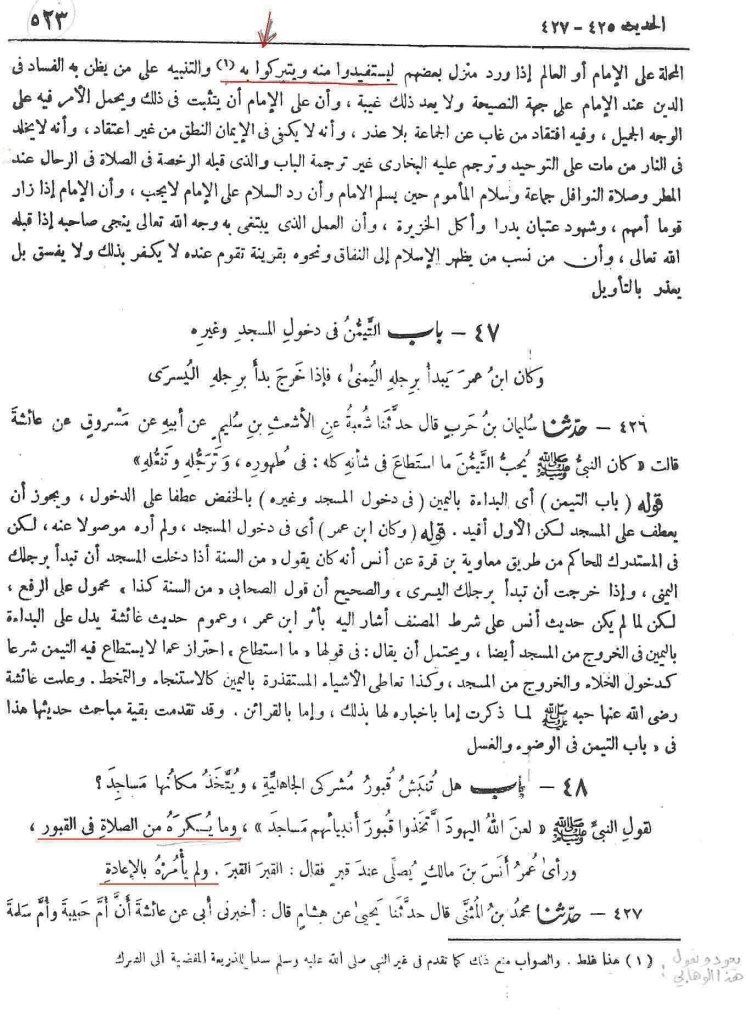 ٥٢٣
الحديث ٤٢٥ - ٤٢٧
المحلة على الإمام أو العالم إذا ورد منزل بعضهم ليستفيدوا منه ويتبركوا به (١) والتنبيه على من يظن به الفساد فى
الدين عند الإمام على جهة النصيحة ولا يعد ذلك غيبة ، وأن على الإمام أن يتثبت فى ذلك ويحمل الأمر فيه على
الوجه الجميل ، وفيه افتقاد من غاب عن الجماعة بلا عذر ، وأنه لا يكفى فى الإيمان النطق من غير اعتقاد ، وأنه لا يخلد
فى النار من مات على التوحيد وترجم عليه البخارى غير ترجمة الباب والذى قبله الرخصة فى الصلاة فى الرحال عند
المطر وصلاة النوافل جماعة وسلام المأموم حين يسلم الامام وأن رد السلام على الإمام لايجب ، وأن الإمام إذا زار
قوما أمهم ، وشهود عتبان بدرا وأكل الخزيرة ، وأن العمل الذى يبتغى به وجه الله تعالى ينجى صاحبه إذا قبله
الله تعالى ، وأن من نسب من يظهر الإسلام إلى النفاق ونحوه بقرينة تقوم عنده لا يكفر بذلك ولا يفسق بل
يعذر بالتأويل
٤٧ - باب التَّيمُّنُ فى دخولِ المسجدِ وغيرِه
وكان ابنُ عمرَ يَبدأُ برِجلهِ اليُمنىٰ ، فإذا خَرجَ بدأَ برِجلهِ اليُسرَى
٤٢٦ - حدّثنا سُليمان بنُ حَربٍ قال حدَّثَنا شُعبةُ عنِ الأشعثِ بنِ سُليمٍ عن أبيهِ عن مَسْروقٍ عن عائشةَ
قالت « كان النبىُّ ﷺ يُحبُّ التَّيمُّنَ ما استَطاعَ فى شأنهِ كلهِ : فى طُهورِه ، وَتَرَجُّلهِ وتَنعُّلهِ»
قوله ( باب التيمن ) أى البداءة باليمين ( فى دخول المسجد وغيره ) بالخفض عطفا على الدخول ، ويجوز أن
يعطف على المسجد لكن الأول أفيد . قوله ( وكان ابن عمر ) أى فى دخول المسجد ، ولم أره موصولا عنه ، لكن
فى المستدرك للحاكم من طريق معاوية بن قرة عن أنس أنه كان يقول « من السنة أذا دخلت المسجد أن تبدأ برجلك
اليمنى ، وإذا خرجت أن تبدأ برجلك اليسرى » والصحيح أن قول الصحابى « من السنة كذا » محمول على الرفع ،
لكن لما لم يكن حديث أنس على شرط المصنف أشار اليه بأثر ابن عمر ، وعموم حديث عائشة يدل على البداءة
باليمين فى الخروج من المسجد أيضا ، ويحتمل أن يقال : فى قولها « ما استطاع » احتراز عما لا يستطاع فيه التيمن شرعا
كدخول الخلاء والخروج من المسجد ، وكذا تعاطى الأشياء المستقذرة باليمين كالاستنجاء والتمخط . وعلمت عائشة
رضى الله عنها حبه ﷺ لما ذكرت إما باخباره لها بذلك ، وإما بالقرائن . وقد تقدمت بقية مباحث حديثها هذا
فى « باب التيمن فى الوضوء والغسل
٤٨ - باب هل تُنبَشُ قُبورُ مُشركى الجاهليَّةِ ، ويُتَّخَذُ مكانُها مَساجدَ ؟
لقولِ النبىِّ ﷺ « لعنَ اللهُ اليهودَ اتَّخذوا قُبورَ أنبيائهم مَساجدَ » ، وما يُكرَهُ من الصلاةِ فى القبور ،
ورأىٰ عُمرُ أنَسَ بنَ مالكٍ يُصلِّى عندَ قبرٍ فقال : القبرَ القبرَ . ولم يأمُرْهُ بالإعادةِ
٤٢٧ - حدّثنا محمدُ بنُ المُثنَّى قال حدَّثَنا يَحيىٰ عن هِشامٍ قال : أخبرنى أبى عن عائشةَ أنَّ أُمَّ حَبيبةَ وأُمَّ سَلمةَ
(١) هذا غلط . والصواب منع ذلك كما تقدم فى غير النبى صلى الله عليه وسلم سدا للذريعة المفضية الى الشرك
يعود ويقول
هذا الوهابي :